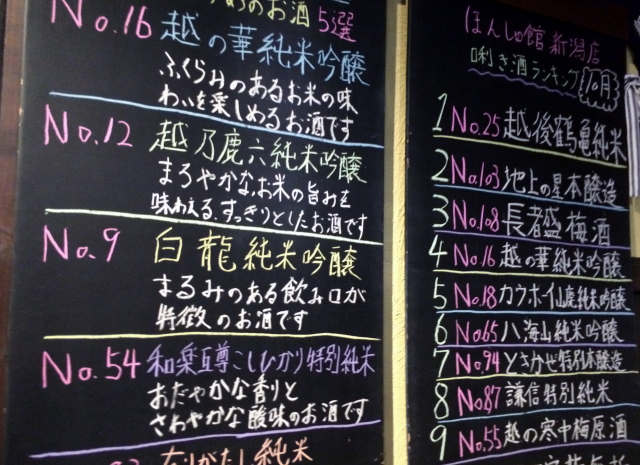 のお酒 5選
No.16 越の華純米吟醸
ふくらみのあるお米の味
わいを楽しめるお酒です
No.12 越乃鹿六純米吟醸
まろやかなお米の旨みを
味わえる、すっきりとしたお酒です
No.9 白龍純米吟醸
まるみのある飲み口が
特徴のお酒です
No.54 和楽互尊こしひかり特別純米
おだやかな香りと
さわやかな酸味のお酒です
純米
ぽんしゅ館 新潟店
唎き酒ランキング 10月
1 No.25 越後鶴亀純米
2 No.103 地上の星本醸造
3 No.108 長者盛梅酒
4 No.16 越の華純米吟醸
5 No.18 カウボーイ山廃純米吟醸
6 No.65 八海山純米吟醸
7 No.94 ときかぜ特別本醸造
8 No.87 謙信特別純米
9 No.55 越の寒中梅原酒